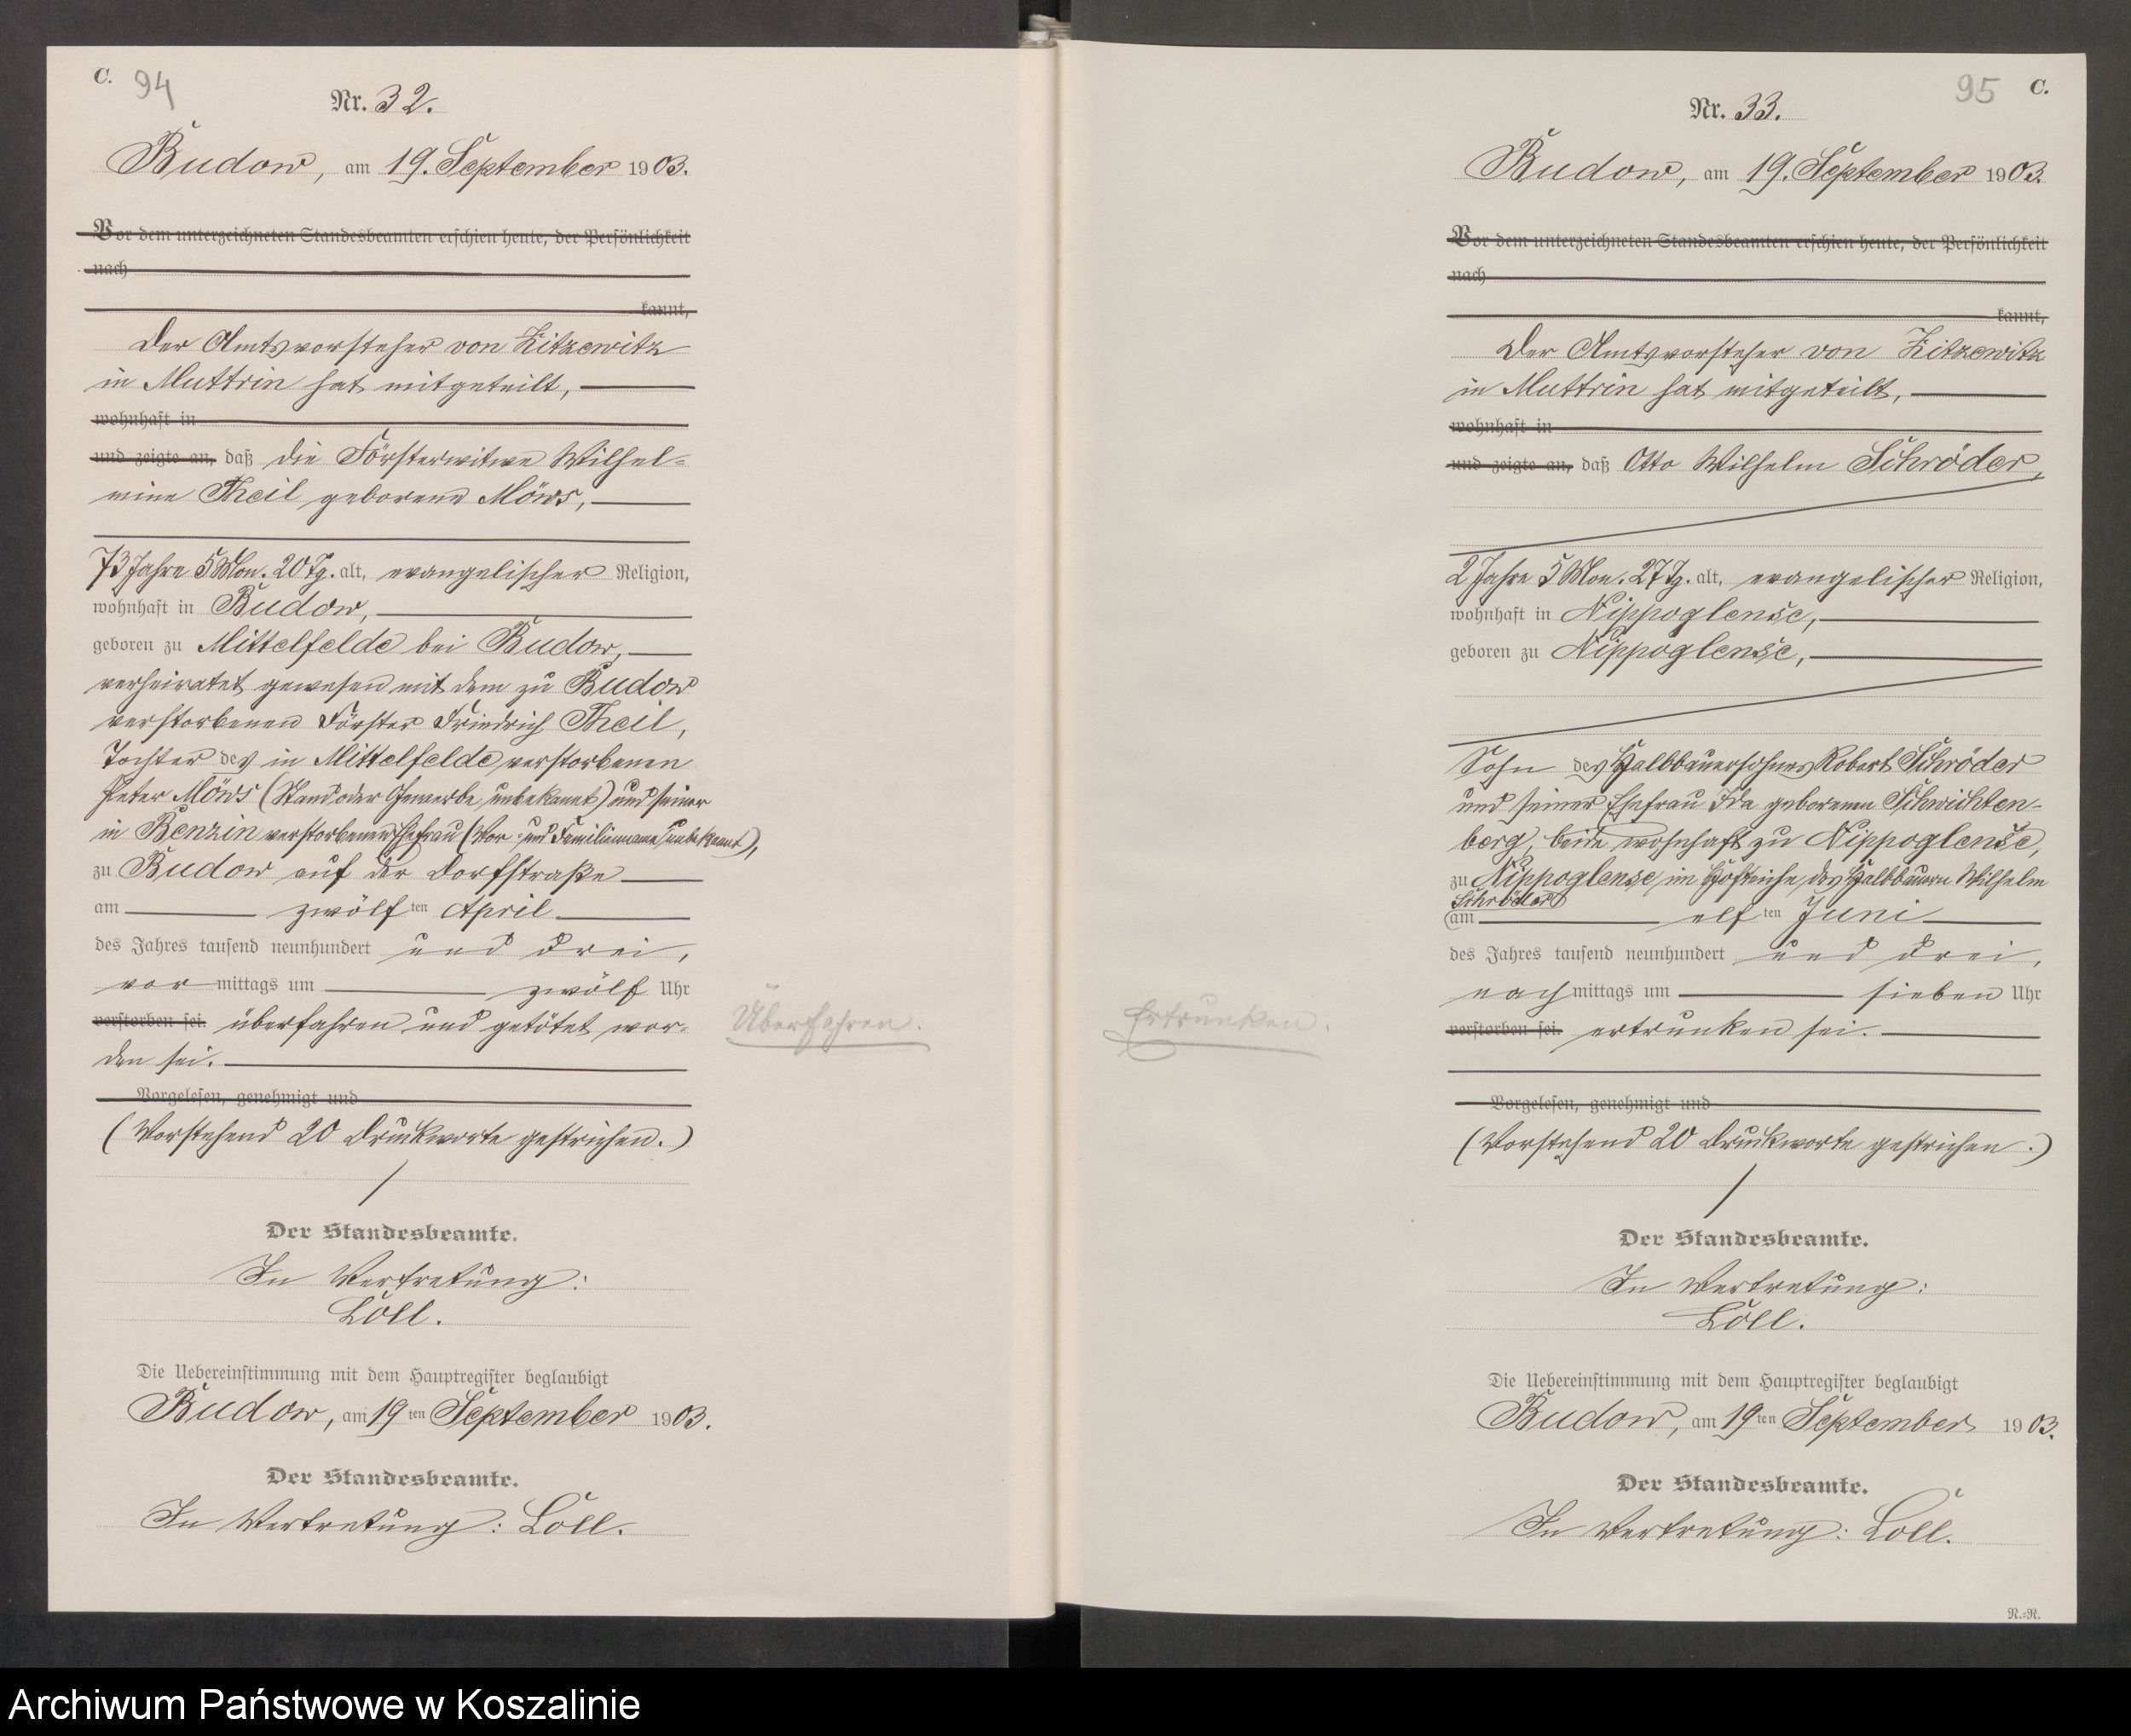 C. 94
Nr. 32.
Budow, am 19. September 1903.
Vor dem unterzeichneten Standesbeamten erschien heute, der Persönlichkeit
nach
kannt,
Der Amtsvorsteher von Zitzewitz
in Muttrin hat mitgeteilt,
wohnhaft in
und zeigte an, daß die Försterwitwe Wilhel-
mine Theil geborene Möws,
73 Jahre 5 Mon. 20 Tg. alt, evangelischer Religion,
wohnhaft in Budow,
geboren zu Mittelfelde bei Budow,
verheiratet gewesen mit dem zu Budow
verstorbenen Förster Friedrich Theil,
Tochter des in Mittelfelde verstorbenen
Peter Möws (Stand oder Gewerbe unbekannt) und seiner
in Benzin verstorbenen Ehefrau (Vor- und Familienname unbekannt),
zu Budow auf der Dorfstraße
am zwölften April
des Jahres tausend neunhundert und drei,
vormittags um zwölf Uhr
verstorben sei. überfahren und getötet wor-
den sei.
Überfahren.
Vorgelesen, genehmigt und
(Vorstehend 20 Druckworte gestrichen.)
Der Standesbeamte.
In Vertretung:
Löll.
Die Uebereinstimmung mit dem Hauptregister beglaubigt
Budow, am 19ten September 1903.
Der Standesbeamte.
In Vertretung: Löll.
95 C.
Nr. 33.
Budow, am 19. September 1903.
Vor dem unterzeichneten Standesbeamten erschien heute, der Persönlichkeit
nach
kannt,
Der Amtsvorsteher von Zitzewitz
in Muttrin hat mitgeteilt,
wohnhaft in
und zeigte an, daß Otto Wilhelm Schröder,
2 Jahre 5 Mon. 27 Tg. alt, evangelischer Religion,
wohnhaft in Nippoglense,
geboren zu Nippoglense,
Sohn des Halbbauersohnes Robert Schröder
und seiner Ehefrau Ida geborenen Schwichten-
berg, beide wohnhaft zu Nippoglense,
zu Nippoglense, im Hofteiche des Halbbauern Wilhelm
Schröder
am elften Juni
des Jahres tausend neunhundert und drei,
nachmittags um sieben Uhr
verstorben sei. ertrunken sei.
Ertrunken.
Vorgelesen, genehmigt und
(Vorstehend 20 Druckworte gestrichen.)
Der Standesbeamte.
In Vertretung:
Löll.
Die Uebereinstimmung mit dem Hauptregister beglaubigt
Budow, am 19ten September 1903.
Der Standesbeamte.
In Vertretung: Löll.
N.=N.
Archiwum Państwowe w Koszalinie